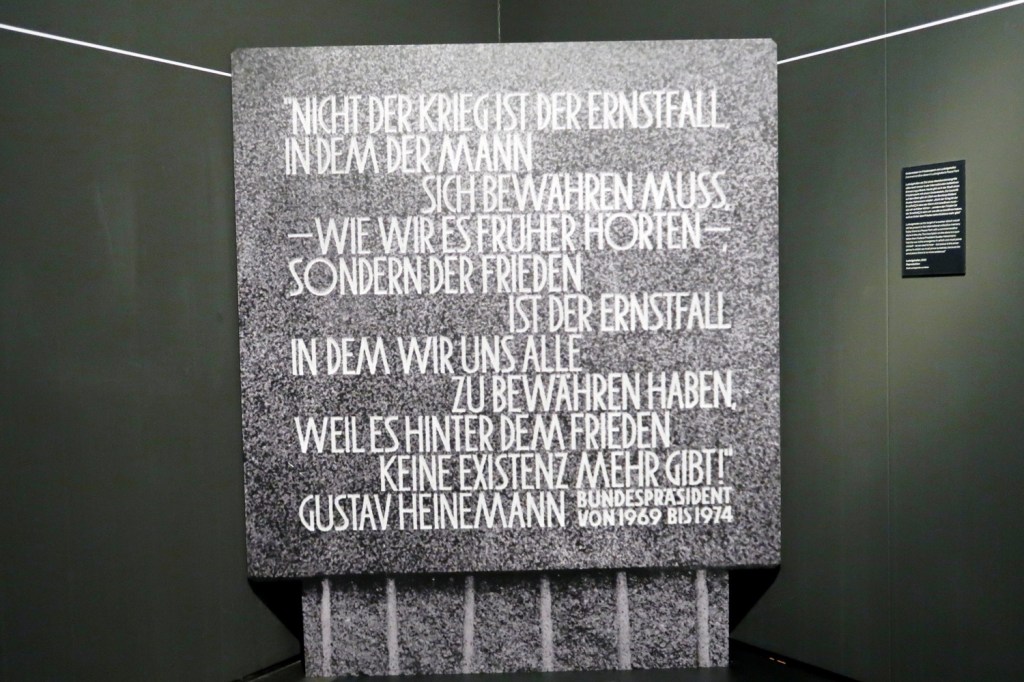 "NICHT DER KRIEG IST DER ERNSTFALL,
IN DEM DER MANN
SICH BEWÄHREN MUSS,
—WIE WIR ES FRÜHER HÖRTEN—,
SONDERN DER FRIEDEN
IST DER ERNSTFALL
IN DEM WIR UNS ALLE
ZU BEWÄHREN HABEN,
WEIL ES HINTER DEM FRIEDEN
KEINE EXISTENZ MEHR GIBT!"
GUSTAV HEINEMANN BUNDESPRÄSIDENT
VON 1969 BIS 1974